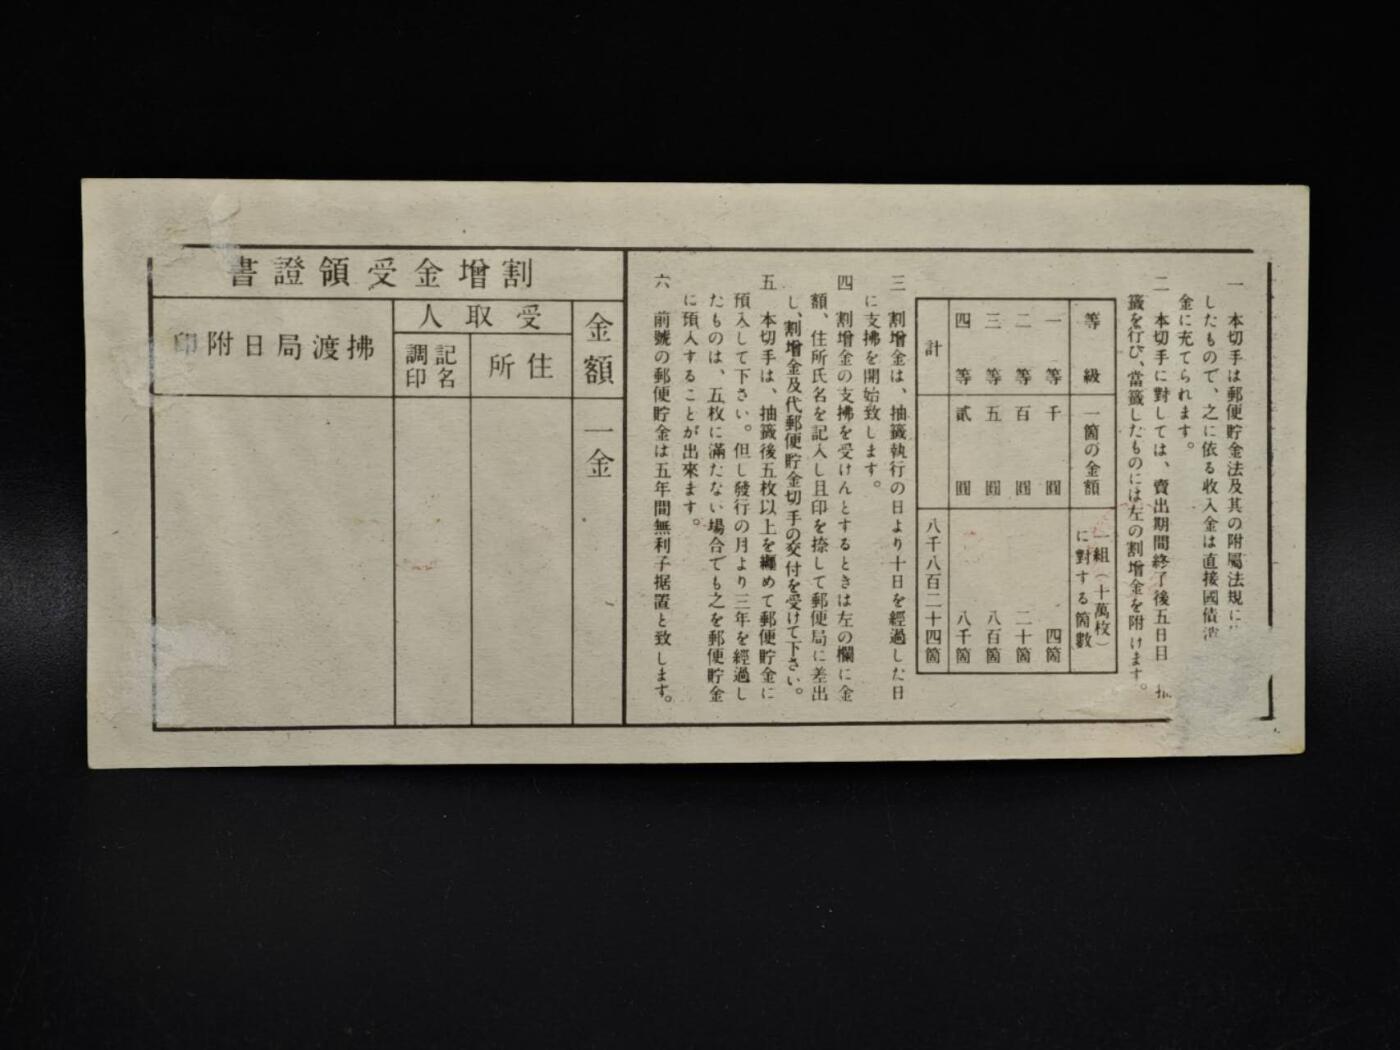 一　本切手は郵便貯金法及其の附屬法規に
したもので、之に依る收入金は直接國債
金に充てられます。
二　本切手に對しては、賣出期間終了後五日目
籤を行ひ、當籤したものには左の割增金を附けます。
等級　一箇の金額　一組（十萬枚）に對する箇數
一等　千圓　四箇
二等　百圓　二十箇
三等　五圓　八百箇
四等　貳圓　八千箇
計　八千八百二十四箇
三　割增金は、抽籤執行の日より十日を經過した日
に支拂を開始致します。
四　割增金の支拂を受けんとするときは左の欄に金
額、住所氏名を記入し且印を捺して郵便局に差出
し、割增金及代郵便貯金切手の交付を受けて下さい。
五　本切手は、抽籤後五枚以上を纏めて郵便貯金に
預入して下さい。但し發行の月より三年を經過し
たものは、五枚に滿たない場合でも之を郵便貯金
に預入することが出來ます。
六　前號の郵便貯金は五年間無利子据置と致します。
割增金受領證書
金額
一金
受取人
住所
記名調印
拂渡局日附印